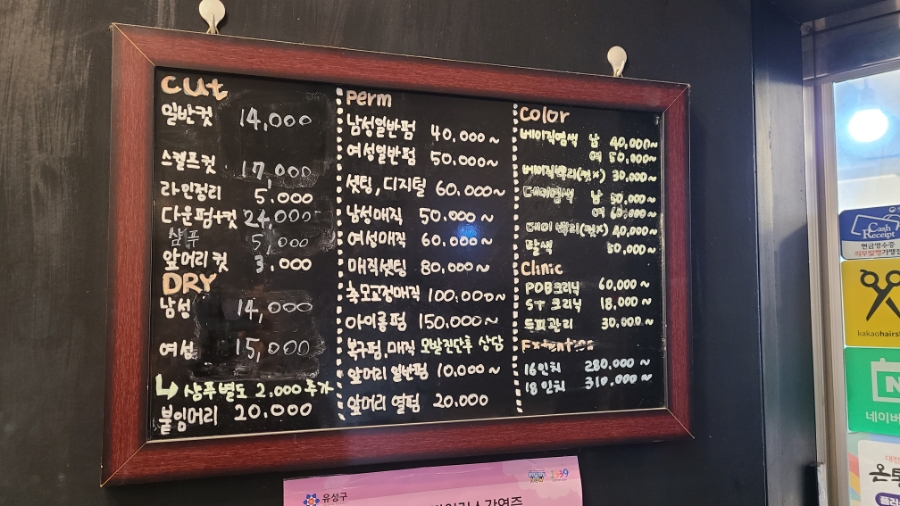 cut
일반컷 14,000
스켈프컷 17,000
라인정리 5.000
다운펌+컷 24,000
샴푸 5,000
앞머리컷 3.000
DRY
남성 14,000
여성 15,000
↳ 샴푸별도 2.000추가
붙임머리 20.000
perm
남성일반펌 40.000~
여성일반펌 50.000~
셋팅, 디지털 60.000~
남성매직 50.000~
여성매직 60.000~
매직셋팅 80.000~
축모교정매직 100.000~
아이롱펌 150.000~
복구펌,매직 모발진단후 상담
앞머리 일반펌 10.000~
앞머리 열펌 20.000
color
베이직염색 남 40,000~
여 50,000~
베이직뿌리(컷x) 30,000~
염색 남 50,000~
여 60,000~
뿌리(컷x) 40,000~
탈색 50,000~
Clinic
PDB크리닉 60,000~
ST크리닉 18,000~
두피관리 30,000~
Extention
16인치 280.000~
18인치 310.000~
유성구
Cash Receipt
현금영수증
kakaohairs
N
네이버